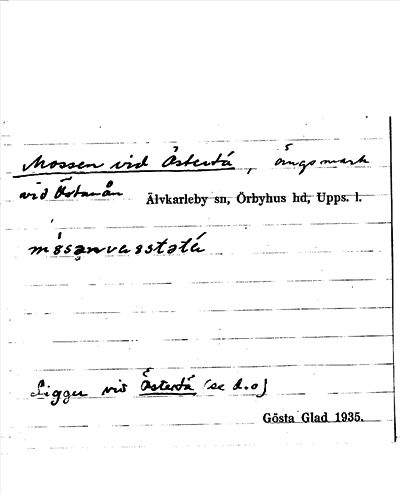 Mossen vid Östertå, ängsmark
vid Östanån
Älvkarleby sn, Örbyhus hd, Upps. l.
Ligger vid Östertå (se d.o)
Gösta Glad 1935.